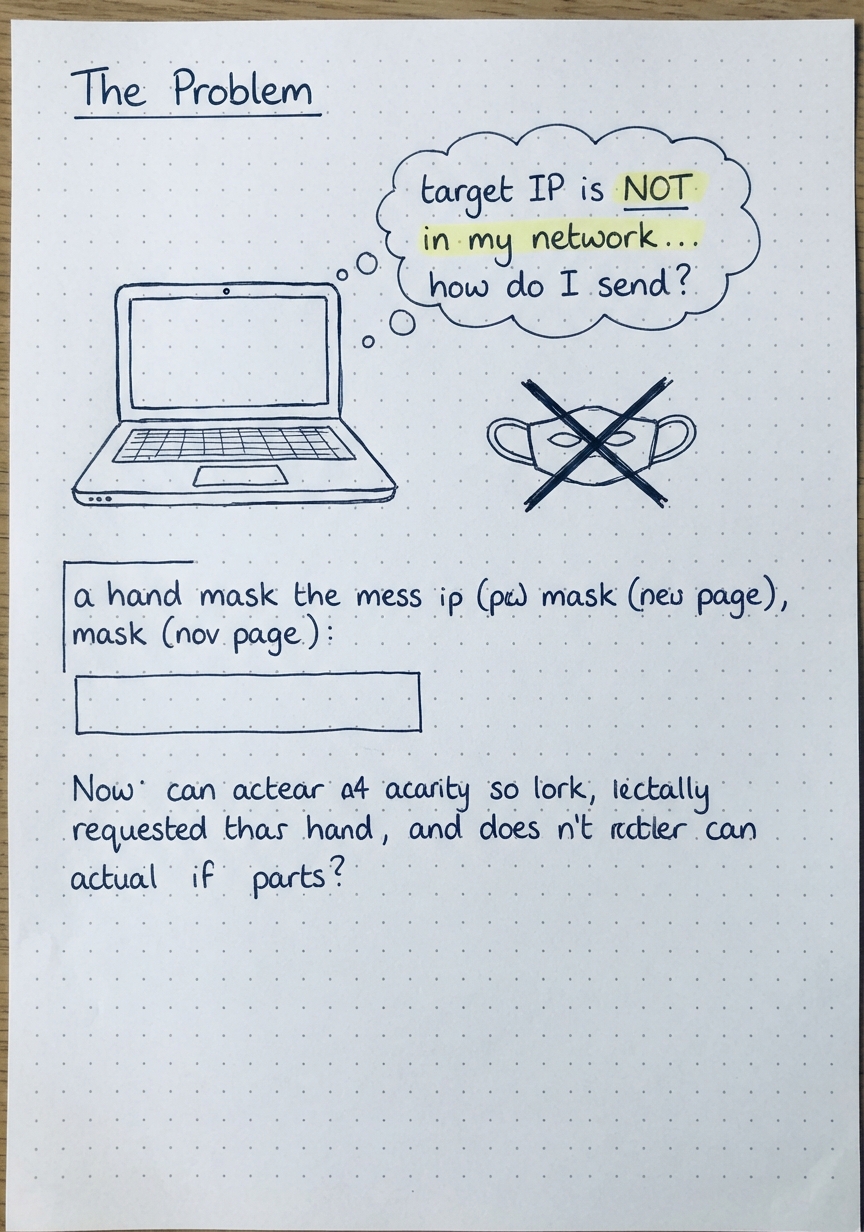 The Problem
target IP is NOT
in my network...
how do I send?
a hand mask the mess ip mask page),
mask (nov page):
Now can actear a4 so lork,
requested hand, and does n't can
actual if parts?